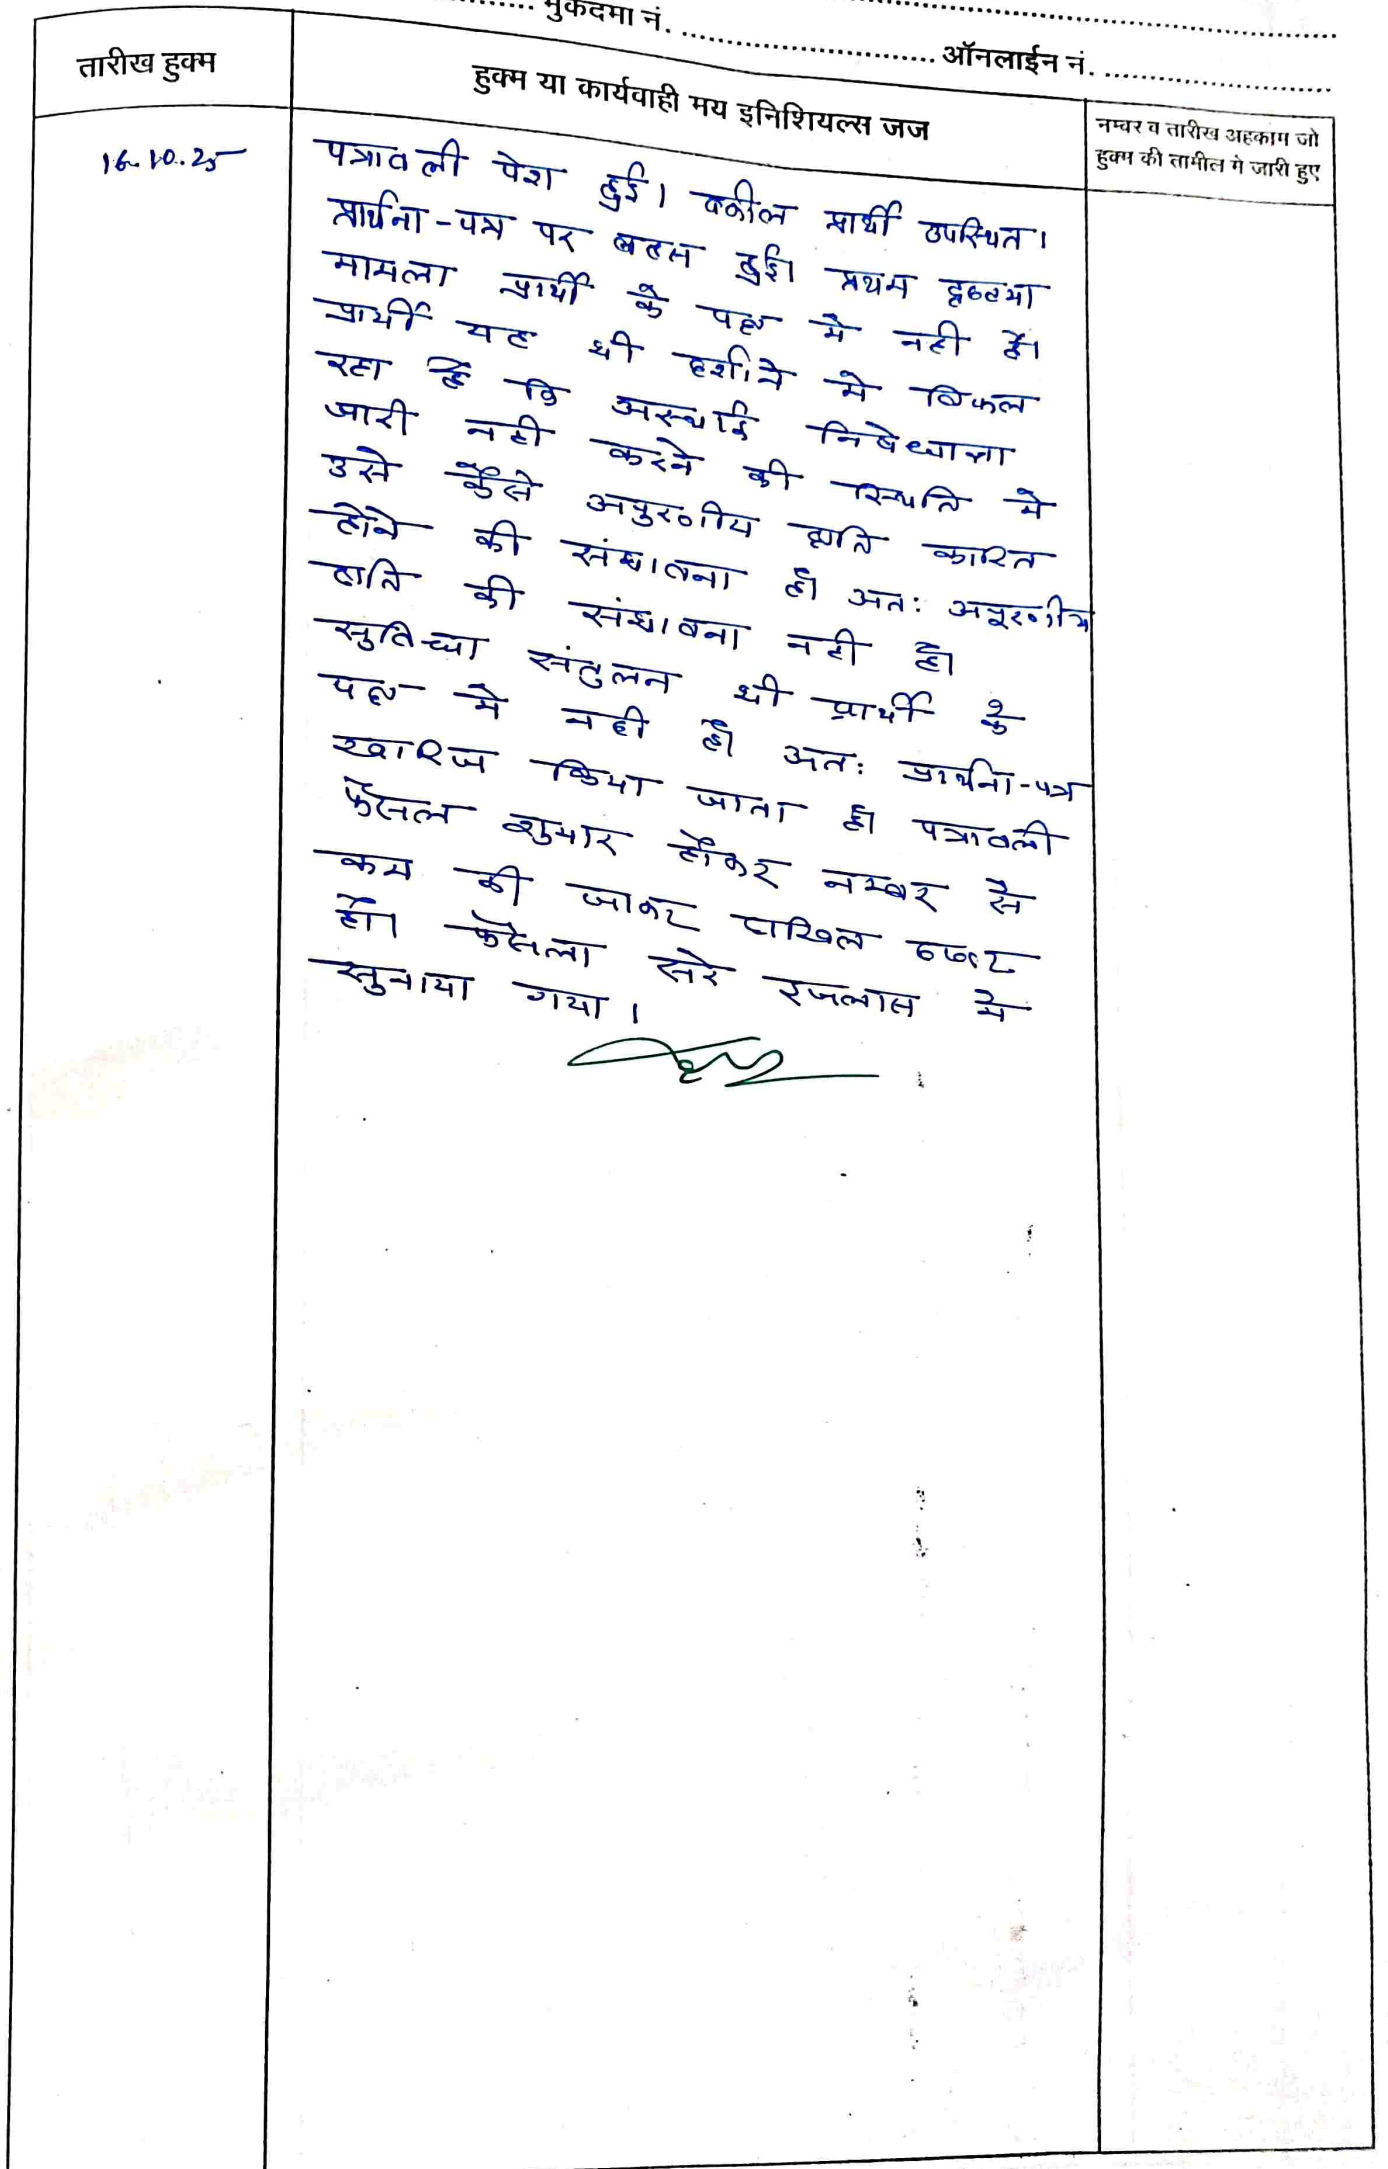 मुकदमा नं. ऑनलाईन नं.
तारीख हुक्म
हुक्म या कार्यवाही मय इनिशियल्स जज
नम्बर व तारीख अहकाम जो
हुक्म की तामील मे जारी हुए
16.10.25
पत्रावली पेश हुई। वकील प्रार्थी उपस्थित।
प्रार्थना-पत्र पर बहस हुई। प्रथम दृष्टया
मामला प्रार्थी के पक्ष मे नही है।
प्रार्थी यह भी दर्शाने मे विफल
रहा है कि अस्थाई निषेधाज्ञा
जारी नही करने की स्थिति मे
उसे कैसे अपुरणीय क्षति कारित
होने की संभावना है। अतः अपूरणीय
क्षति की संभावना नही है।
सुविधा संतुलन भी प्रार्थी के
पक्ष मे नही है। अतः प्रार्थना-पत्र
खारिज किया जाता है। पत्रावली
फैसल शुमार होकर नम्बर से
कम की जाकर दाखिल दफ्तर
हो। फैसला सरे इजलास मे
सुनाया गया।